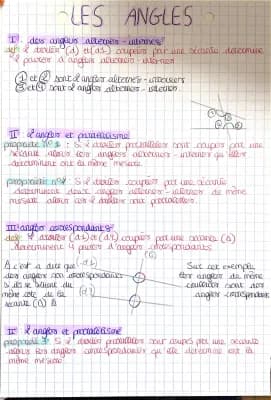 LES ANGLES
I. des angles alternes-internes
def: 2 droites (d) et (d1) coupées par une sécante détermine
2 paires d'angles alternes-internes
① et ② sont 2 angles alternes-internes
③ et ④ sont 2 angles alternes-internes.
II 2 angles et parallélisme
propriété n°1: Si 2 droites parallèles sont coupées par une
sécante alors les angles alternes-internes qu'elles
déterminent ont la même mesure.
propriété n°2: Si 2 droites coupées par une sécante
déterminent deux angles alternes-internes de même
mesure alors ces 2 droites sont parallèles.
III angles correspondants
def: 2 droites (d1) et (d2) coupées par une sécante (Δ)
déterminent 4 paires d'angles correspondants
(Δ)
C'est à dire que
des angles sont correspondants
si ils se situent du
même côté de la
sécante
Sur cet exemple
les angles de même
couleur sont des
angles correspondants
II 2 angles et parallélisme
propriété 3: Si 2 droites parallèles sont coupées par une sécante
alors les angles correspondants qu'elle détermine ont la même
mesure